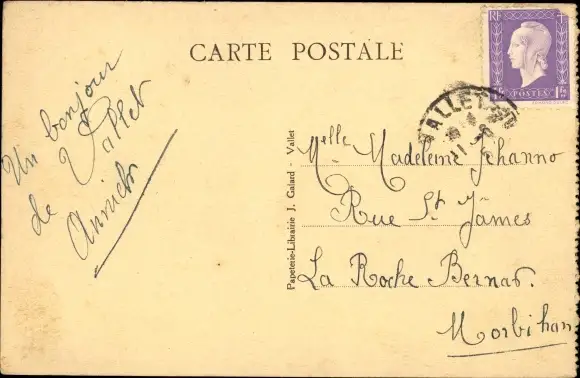 CARTE POSTALE
RF
POSTES
VALLET
11
Un bonjour
de Vallet
Papeterie-Librairie J. Galard - Vallet
Melle Madeleine Jéhanno
Rue St James
La Roche Bernar.
Morbihan